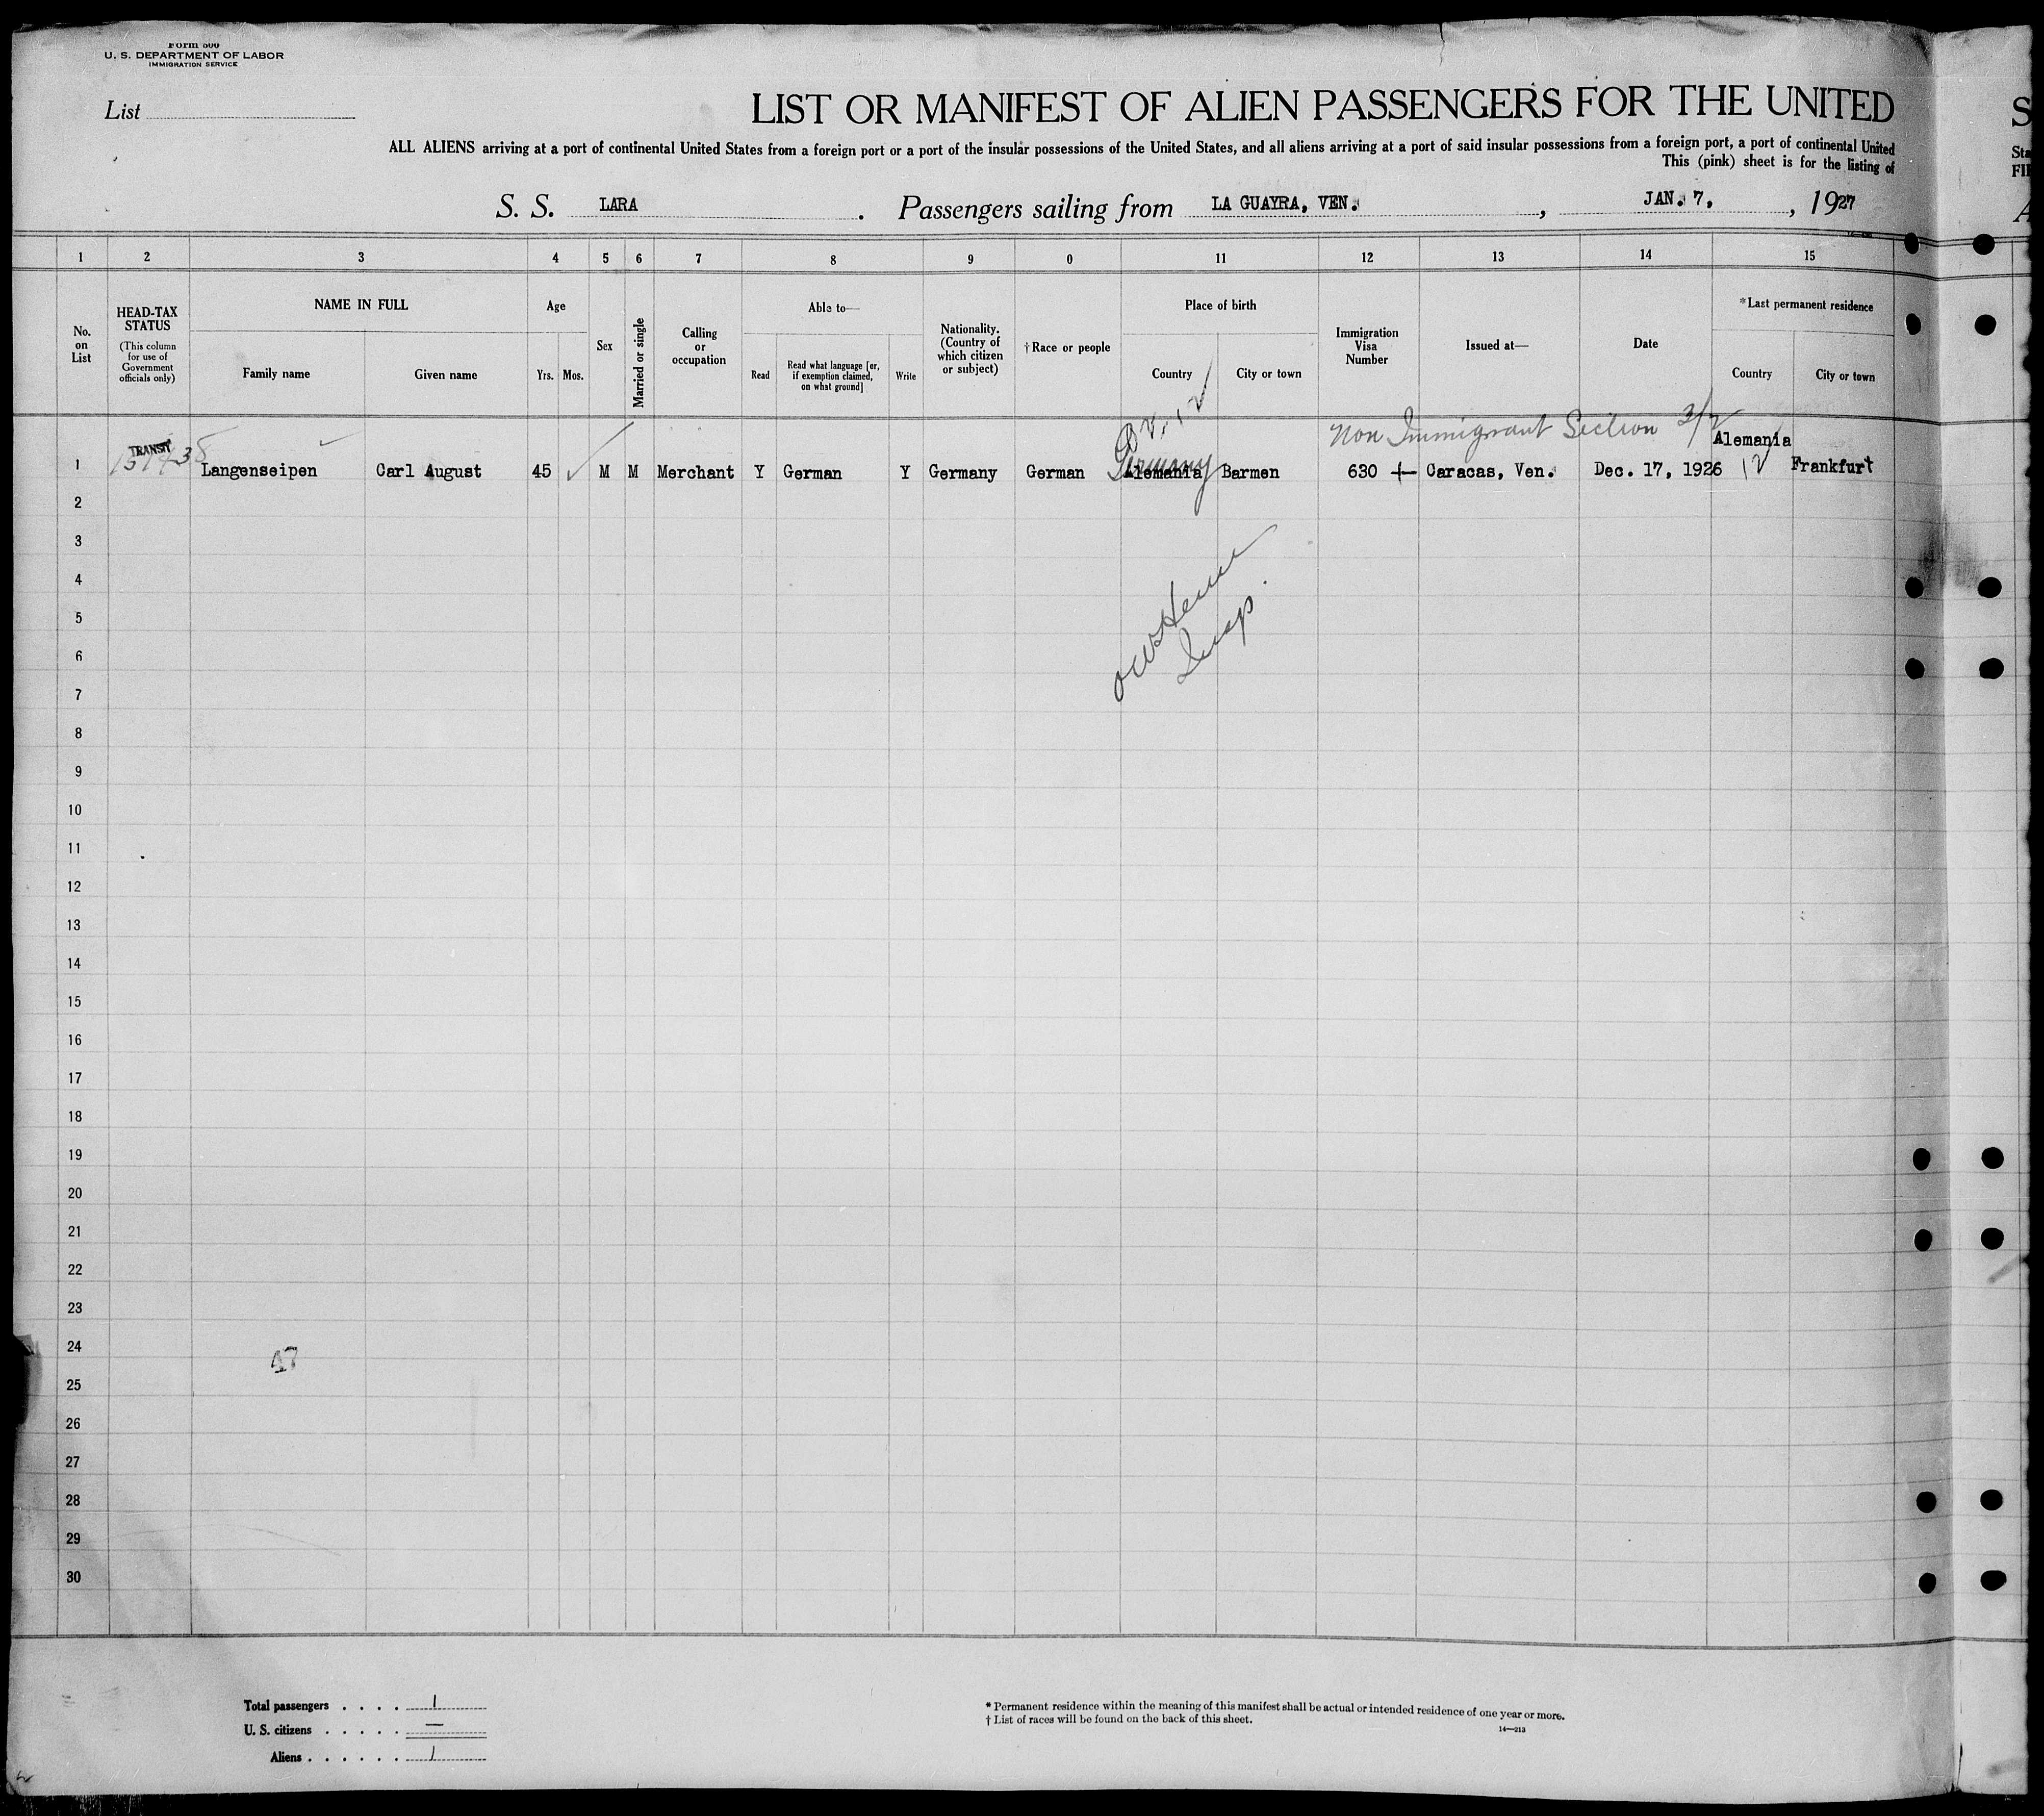 Form 500
U. S. DEPARTMENT OF LABOR
IMMIGRATION SERVICE
List
LIST OR MANIFEST OF ALIEN PASSENGERS FOR THE UNITED
ALL ALIENS arriving at a port of continental United States from a foreign port or a port of the insular possessions of the United States, and all aliens arriving at a port of said insular possessions from a foreign port, a port of continental United
This (pink) sheet is for the listing of
S. S. LARA . Passengers sailing from LA GUAYRA, VEN. , JAN. 7, , 1927
1 2 3 4 5 6 7 8 9 0 11 12 13 14 15
No. on List
HEAD-TAX STATUS
(This column for use of Government officials only)
NAME IN FULL
Family name
Given name
Age
Yrs. Mos.
Sex
Married or single
Calling or occupation
Able to—
Read
Read what language [or, if exemption claimed, on what ground]
Write
Nationality. (Country of which citizen or subject)
† Race or people
Place of birth
Country
City or town
Immigration Visa Number
Issued at—
Date
* Last permanent residence
Country
City or town
Non Immigrant Section 3/2
1 TRANSIT Langenseipen Carl August 45 M M Merchant Y German Y Germany German Alemania Germany Barmen 630 Caracas, Ven. Dec. 17, 1926 Alemania Frankfurt
2
3
4
5
6
Insp.
7
8
9
10
11
12
13
14
15
16
17
18
19
20
21
22
23
24
25
26
27
28
29
30
Total passengers . . . . 1
U. S. citizens . . . . . —
Aliens . . . . . . 1
* Permanent residence within the meaning of this manifest shall be actual or intended residence of one year or more.
† List of races will be found on the back of this sheet.
14—213